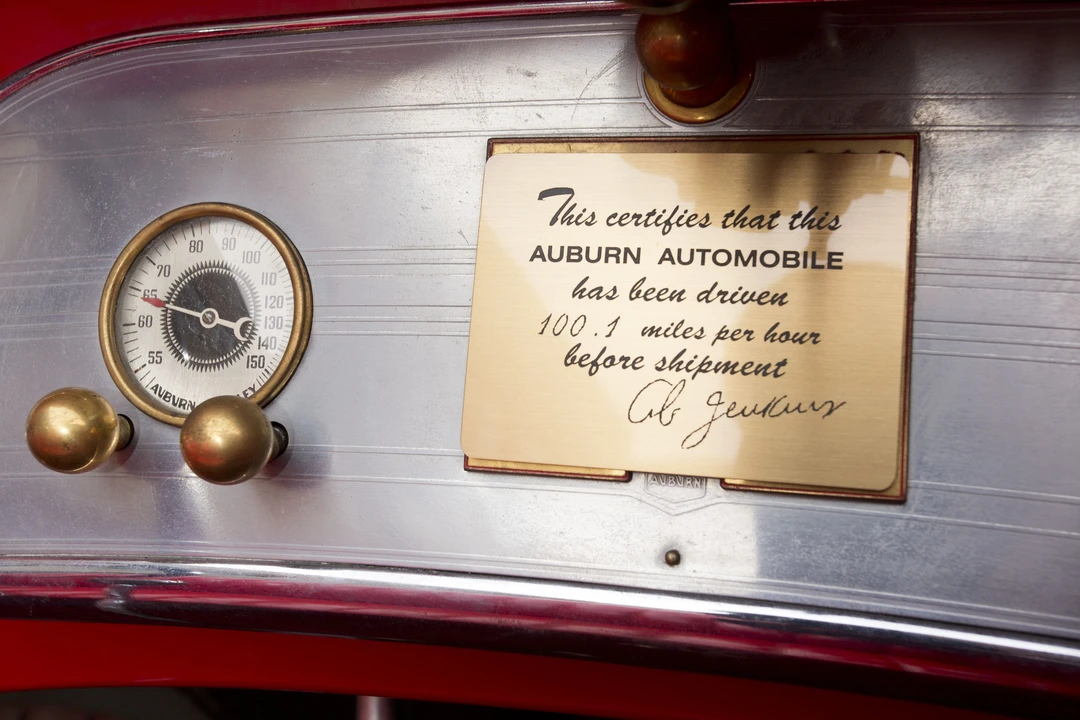 80 90
70 100
110
65 120
60 130
140
55 150
AUBURN
This certifies that this
AUBURN AUTOMOBILE
has been driven
100.1 miles per hour
before shipment
Ab Jenkins
AUBURN